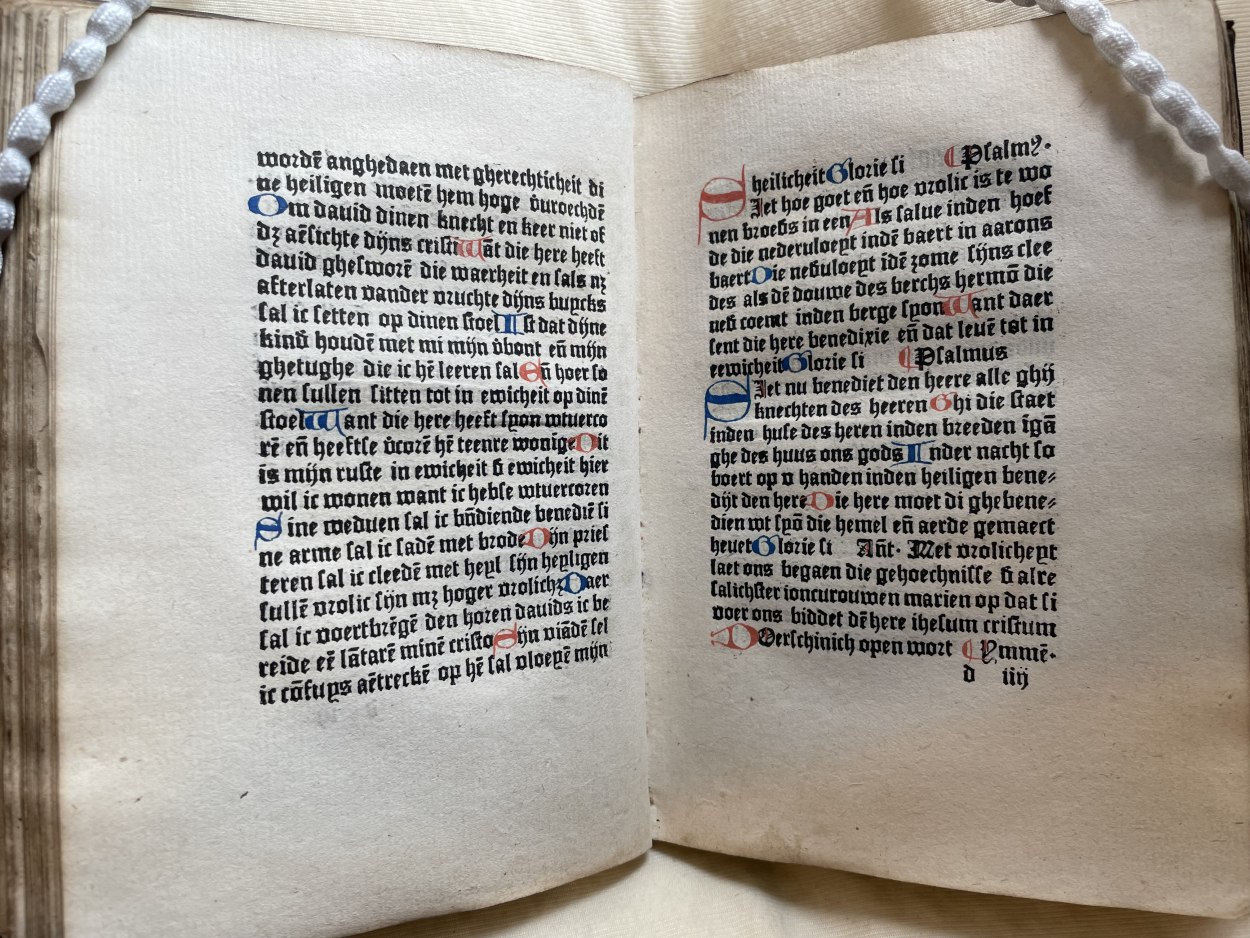 wordē anghedaen met gherechticheit di
ne heiligen moetē hem hoge vuroechdē
Om dauid dinen knecht en keer niet of
dz aēsichte dijns cristi Wāt die here heeft
dauid ghesworē die waerheit en sals nz
afterlaten vander vruchte dijns buycks
sal ic setten op dinen stoel Ist dat dijne
kind houdē met mi mijn vbont eñ mijn
ghetughe die ic hē leeren sal Eñ hoer so
nen sullen sitten tot in ewicheit op dinē
stoel Want die here heeft syon wtuerco
rē eñ heeftse vcorē hē teenre wonige Dit
is mijn ruste in ewicheit ẞ ewicheit hier
wil ic wonen want ic hebse wtuercoren
Sine weduen sal ic bñdiende benediē si
ne arme sal ic sadē met brode Dijn pries
teren sal ic cleedē met heyl sijn heyligen
sullē vrolic sijn mz hoger vrolichz Daer
sal ic voertbrēgē den horen dauids ic be
reide eē lātarē minē cristo Sijn viādē sel
ic cōfuys aētreckē op hē sal vloeyē mijn
heilicheit Glorie si Psalmꝯ.
Siet hoe goet eñ hoe vrolic is te wo
nen broeds in een Als salue inden hoef
de die nederuloeyt indē baert in aarons
baert Die neduloeyt idē zome sijns clee
des als dē douwe des berchs hermō die
ned coemt inden berge syon Want daer
sent die here benedixie eñ dat leuē tot in
eewicheit Glorie si Psalmus
Siet nu benediet den heere alle ghij
knechten des heeren Ghi die staet
inden huse des heren inden breeden īgā
ghe des huus ons gods Inder nacht so
boert op v handen inden heiligen bene⸗
dijt den here Die here moet di ghebene⸗
dien wt syō die hemel eñ aerde gemaect
heuet Glorie si Añt. Met vrolicheyt
laet ons begaen die gehoechnisse ẞ alre
salichster ioncurouwen marien op dat si
voer ons biddet dē here ihesum cristum
Verschinich open wort Ymmē.
d iiij